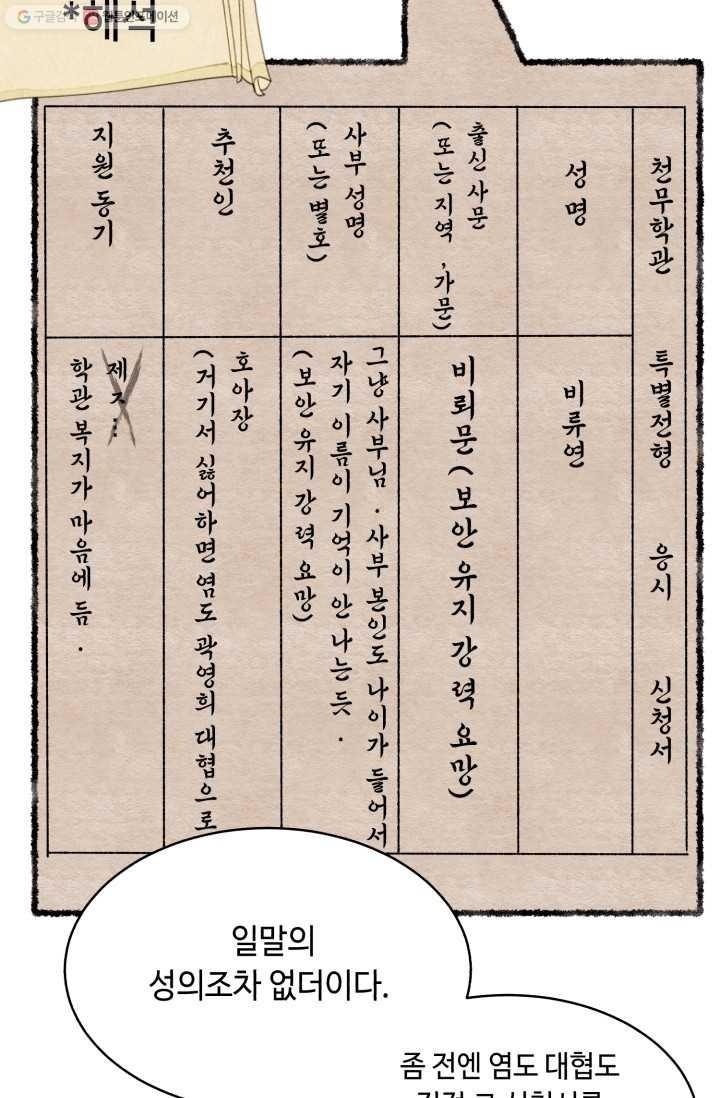 구글검
웹툰인포메이션
*해석
천무학관 특별전형 응시 신청서
성명
비류연
출신 사문
(또는 지역, 가문)
비뢰문(보안 유지 강력 요망)
사부 성명
(또는 별호)
그냥 사부님. 사부 본인도 나이가 들어서
자기 이름이 기억이 안 나는 듯.
(보안 유지 강력 요망)
추천인
호아장
(거기서 싫어하면 염도 곽영희 대협으로
지원 동기
제ㅈ...
학관 복지가 마음에 듬.
일말의
성의조차 없더이다.
좀 전엔 염도 대협도